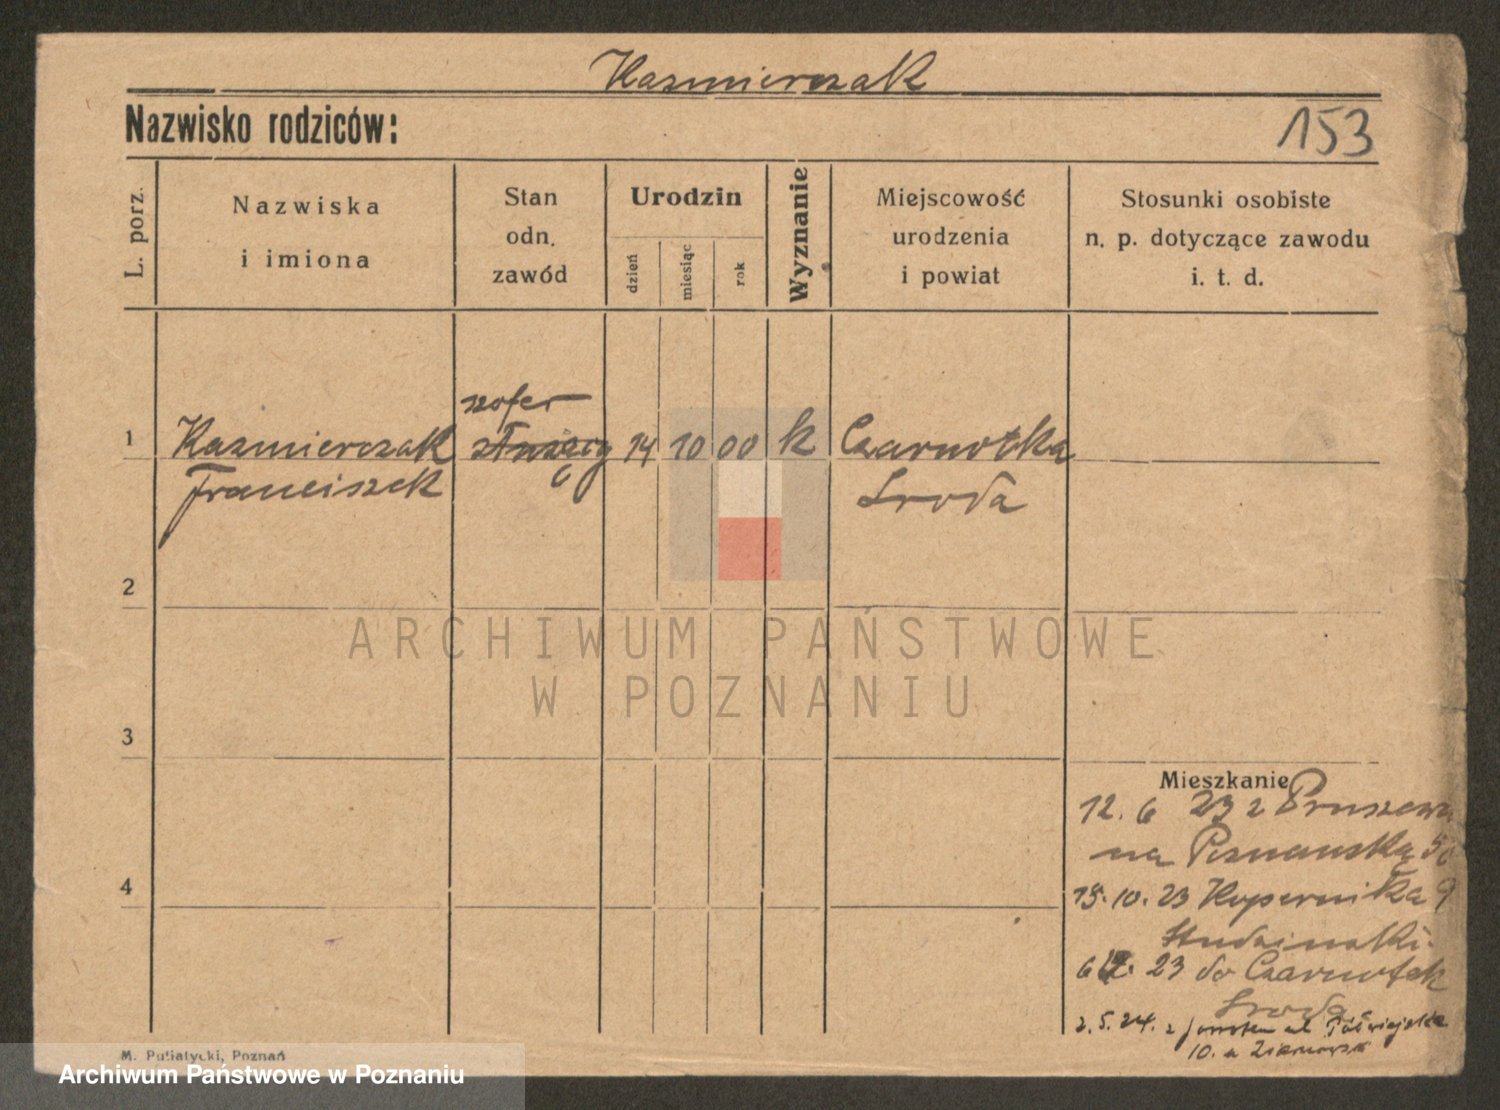 Kazmierczak
Nazwisko rodziców:
153
L. porz.
Nazwiska
i imiona
Stan
odn.
zawód
Urodzin
dzień
miesiąc
rok
Wyznanie
Miejscowość
urodzenia
i powiat
Stosunki osobiste
n. p. dotyczące zawodu
i. t. d.
szofer
1 Kazmierczak służący 14 10 00 k Czarnotka
Franciszek Sroda
2
ARCHIWUM PAŃSTWOWE
W POZNANIU
3
Mieszkanie
12. 6 23 z
na Poznańską
15. 10. 23 Kopernika 9
Studzinski
6 23 do Czarnotek
Sroda
2. 5. 24. z powrotem ul Półwiejska
10. u
4
M. Putiatycki, Poznań
Archiwum Państwowe w Poznaniu